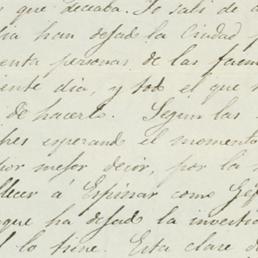 que deseaba. Yo salí de
dia han dejado la Ciudad
enta personas de las fam
inte dia, y todo el que
de hacerlo. Segun las
hes esperando el momento
por mejor decir, por la
decer á Espinar como Gef
que ha dejado la investi
lo tiene. Esta clase d